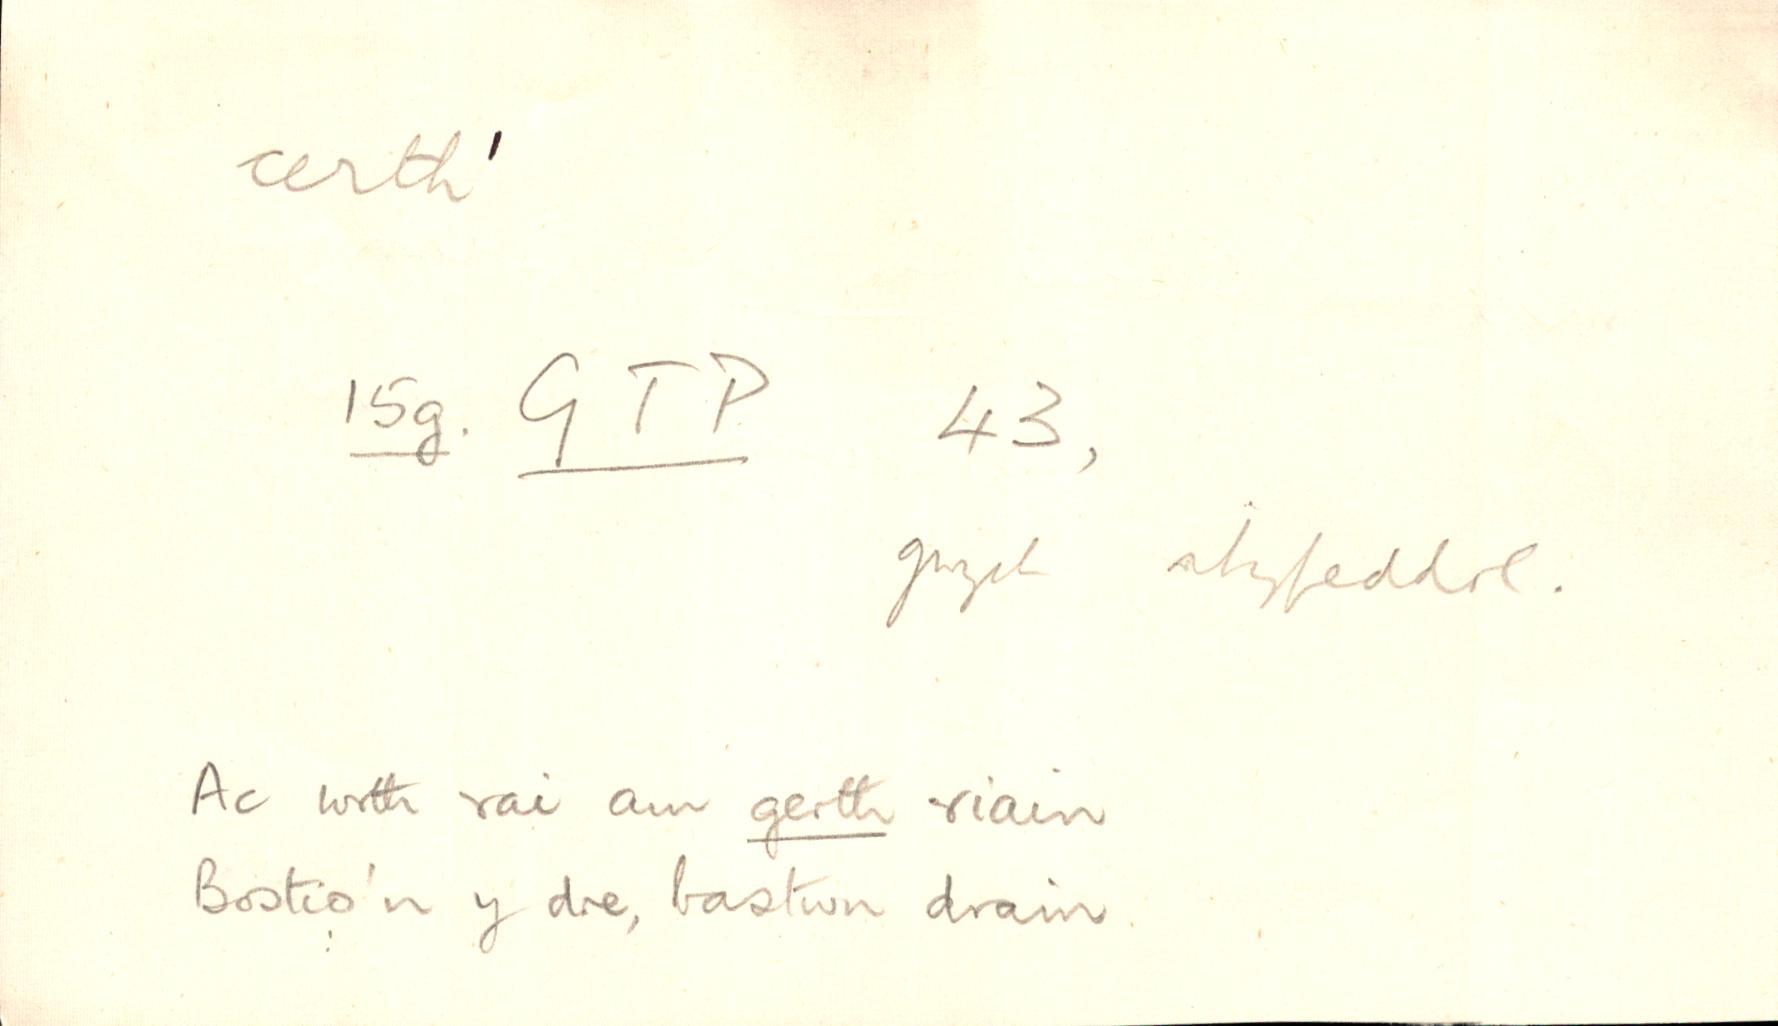 certh'
15g. GTP 43,
gwych athyfeddol.
Ac wrth rai am gerth riain
Bostio'n y dre, bastwn drain